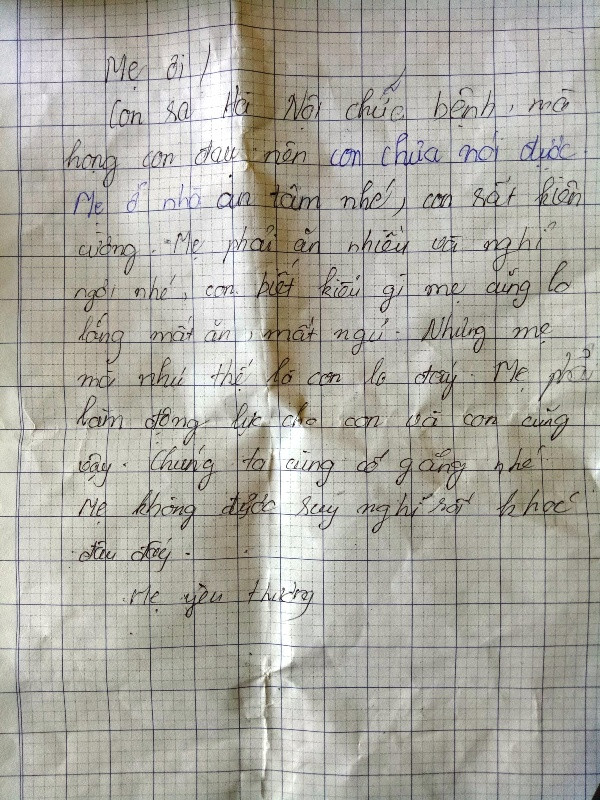 Mẹ ơi!
Con ra Hà Nội chữa bệnh, mà
họng con đau nên con chưa nói được.
Mẹ ở nhà an tâm nhé, con rất kiên
cường. Mẹ phải ăn nhiều và nghỉ
ngơi nhé, con biết kiểu gì mẹ cũng lo
lắng mất ăn, mất ngủ. Nhưng mẹ
mà như thế là con lo đấy. Mẹ phải
làm động lực cho con và con cũng
vậy. Chúng ta cùng cố gắng nhé.
Mẹ không được suy nghĩ rồi khóc
đâu đấy.
Mẹ yêu thương